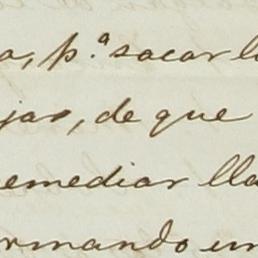 o, p.ª sacar l
jas, de que
emediar lla
rmando un